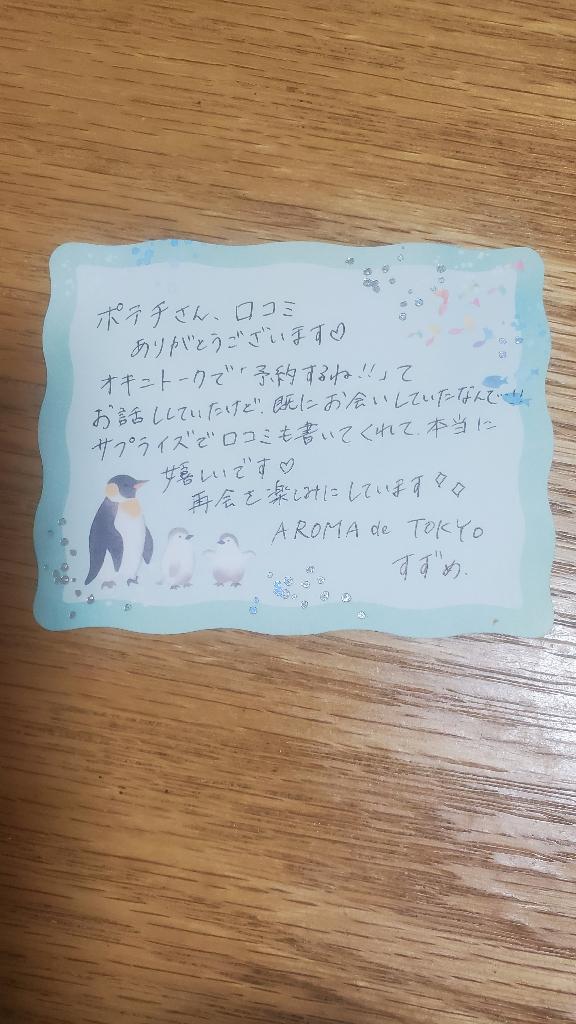 ポテチさん、口コミ
ありがとうございます♡
オキニトークで「予約するね!!」って
お話ししていたけど、既にお会いしていたなんて…!!
サプライズで口コミも書いてくれて、本当に
嬉しいです♡
再会を楽しみにしています◇◇
AROMA de TOKYO
すずめ.